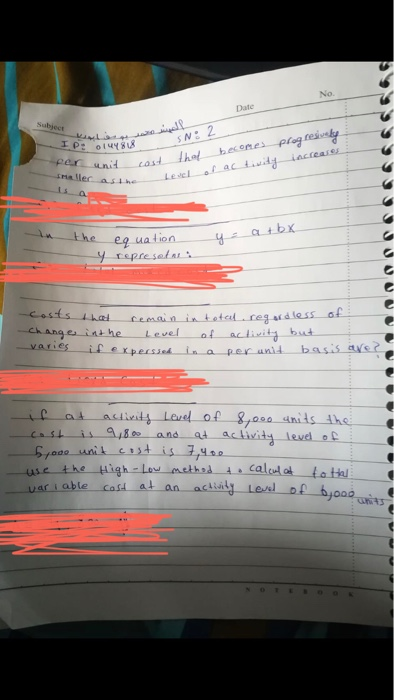 Date
No.
Subject
SN: 2
per unit cost that becomes progresively
smaller as the Level of activity increases
is a
In the equation y = a + bx
y represetns:
costs that remain in total regardless of
change in the Level of activity but
varies if experssed in a per unit basis are?
if at activity Level of 8,000 units the
cost is 9,800 and at activity level of
5,000 unit cost is 7,400
use the High-Low method to calculat tottal
variable cost at an activity Level of 6,000 units
NOTEBOOK